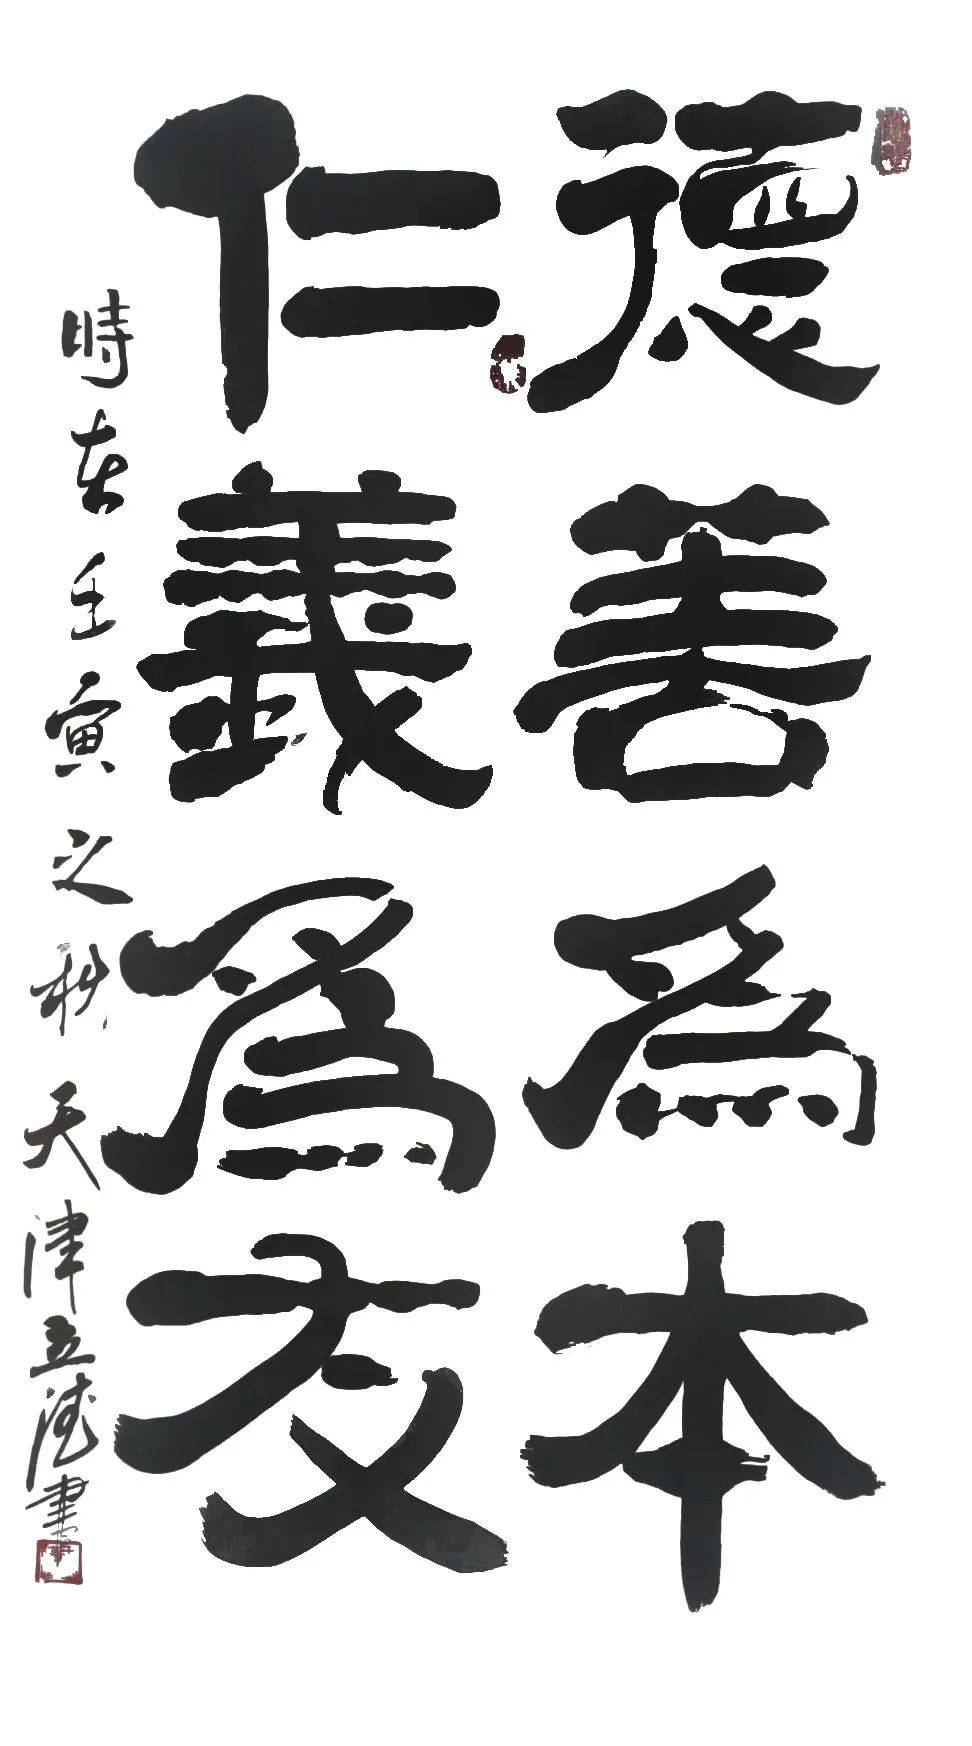 德善為本
仁義為友
時在壬寅之秋天津立德書